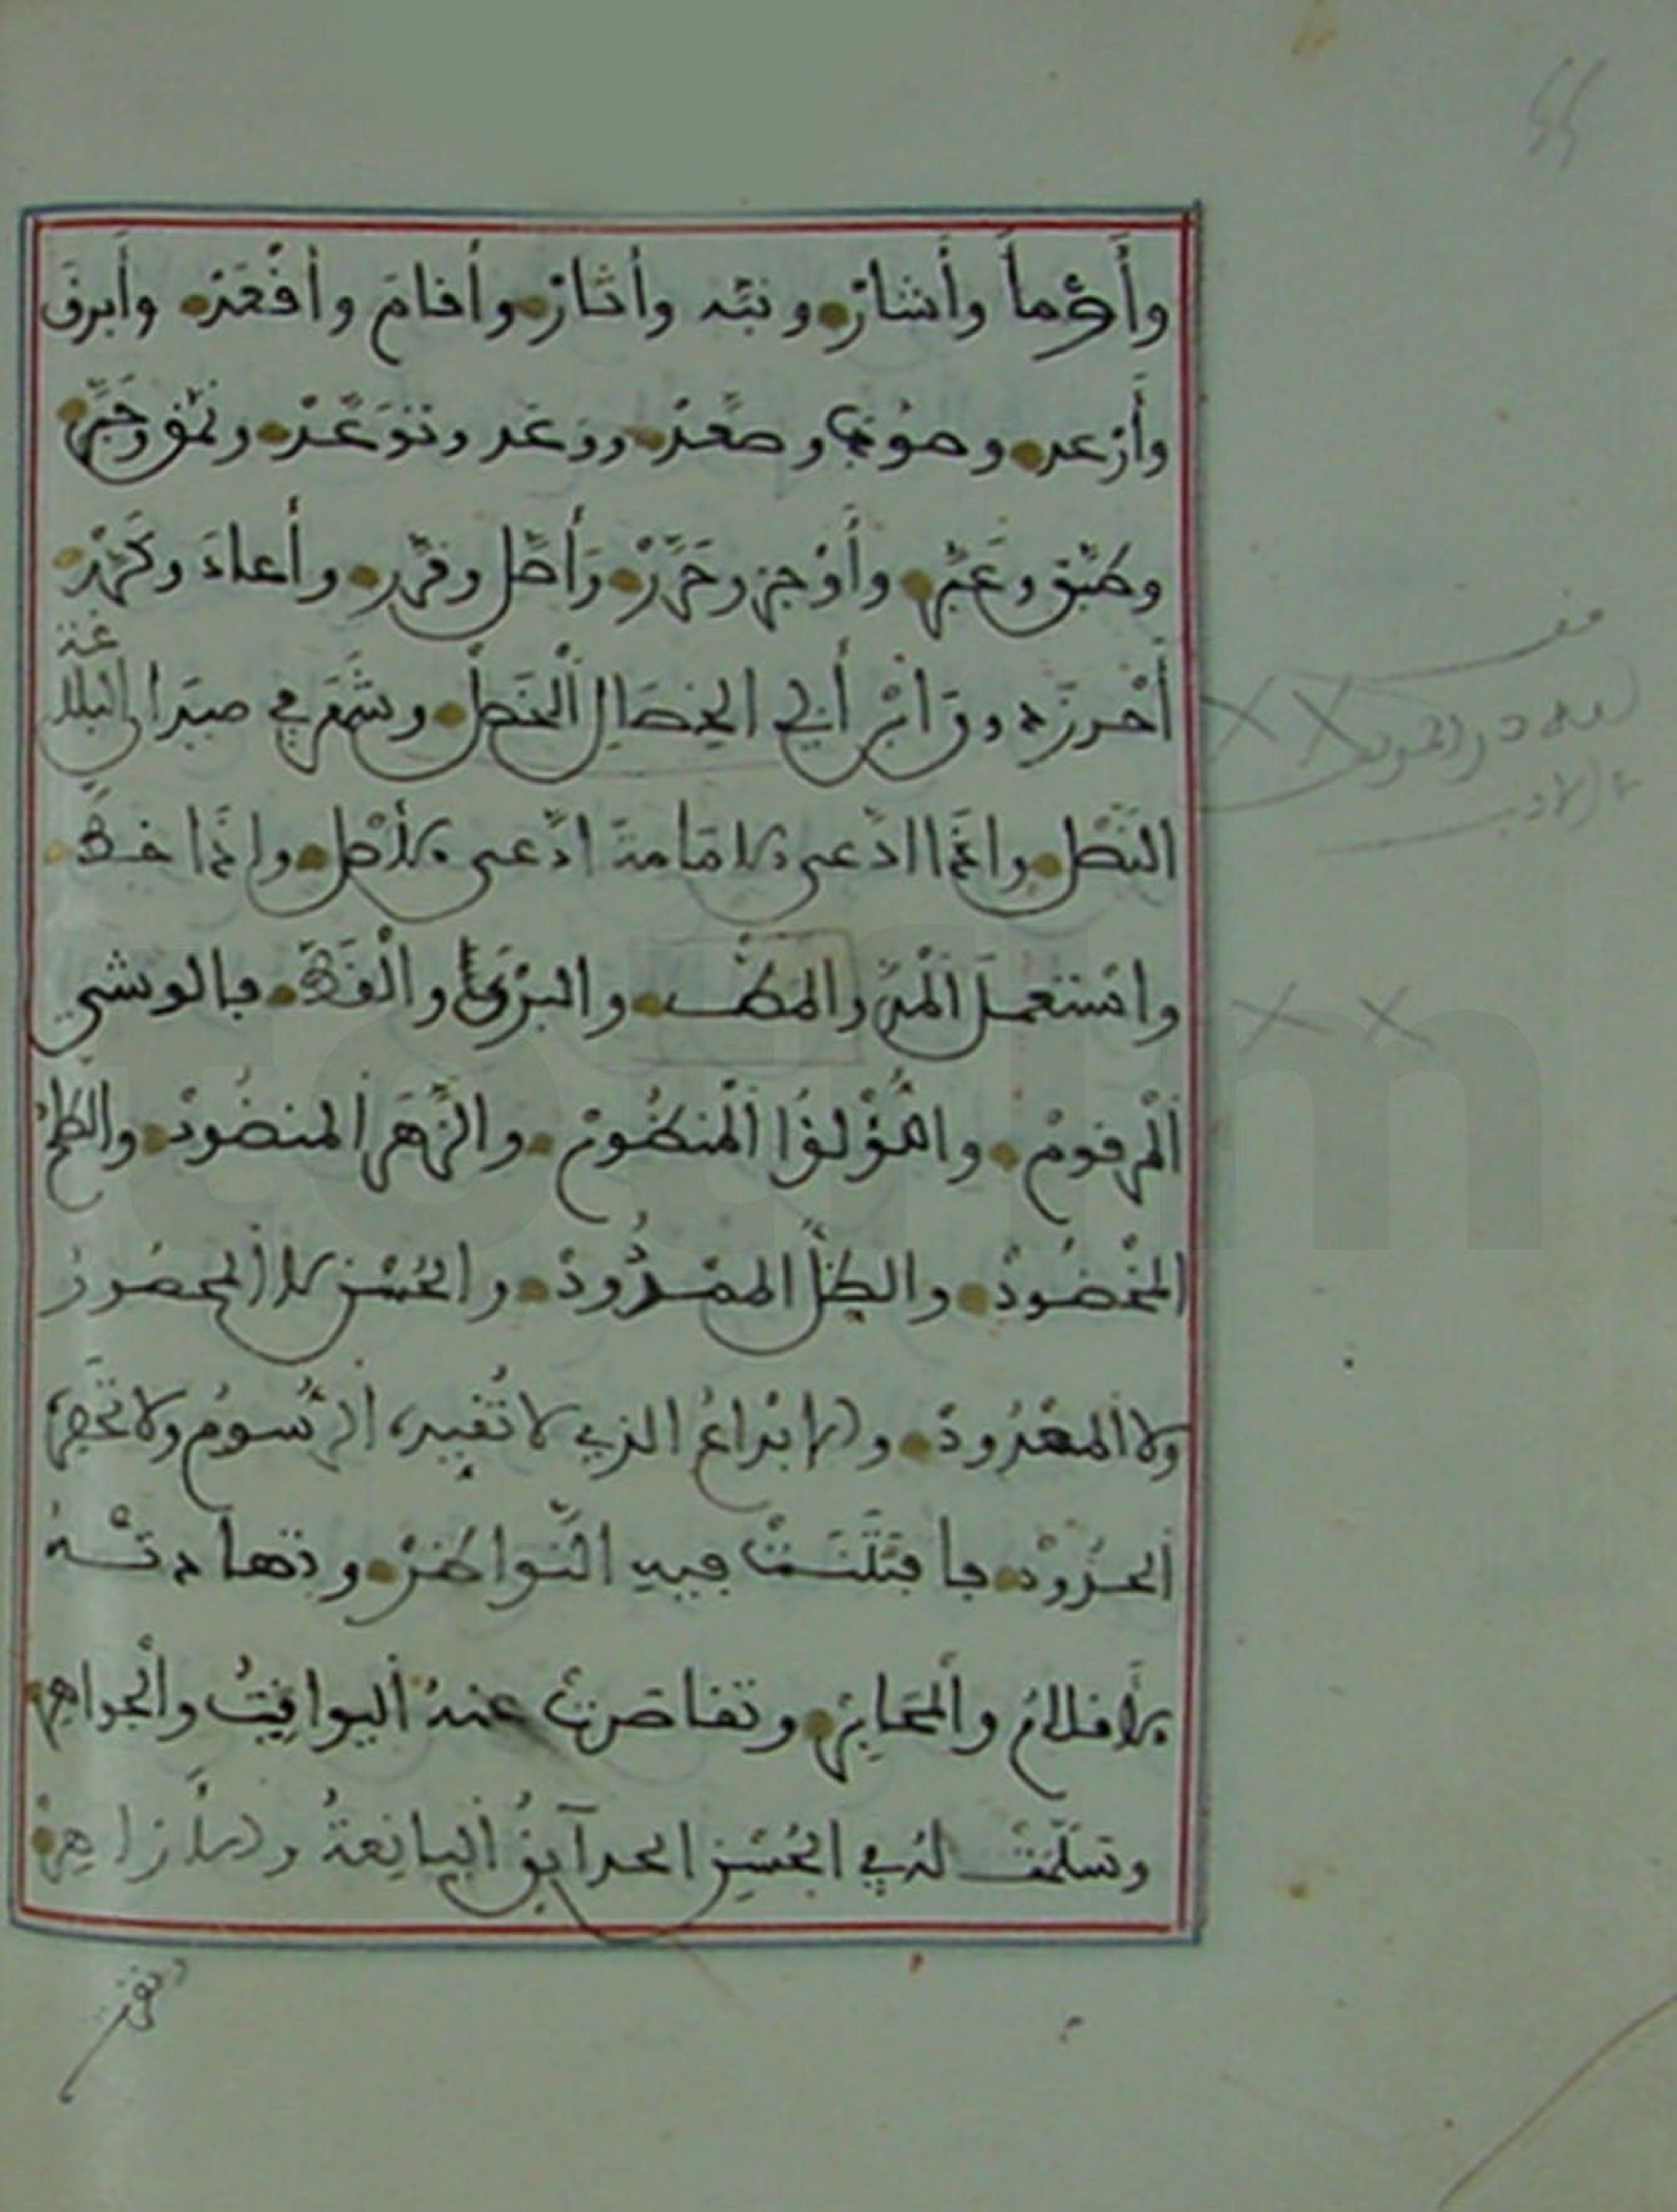 وأَوْمأَ وأَشارْ ونبّه وأثارْ وأقامَ وأقْعَدْ وأبرقَ
وأرْعد وصوّبَ وصعّدْ ووَعَد وتوَعَّدْ ونمّق وحَبَّرْ
وطبّق وعَبَّر وأَوْجز وحَرَّرْ وَأصّل وقرّر وأعادَ وكَرَّرْ
أحْرزَ دون ابْن أبي الخِصَالِ الْخَصْلْ وشَمَّر في ميدانِ البلاغة
النّصْل وإنّما ادّعى الإمامةَ ادّعى بالأصْل وإنّما خطّ
واسْتعملَ الْمدّ والمَطّ والبَرْيَ والْقَطّ فالوشي
اَلْمرقومْ واللُّؤْلؤُ اَلْمنظُومْ والزَّهَر اَلمنضُودْ والطلح
المخْضُودْ والظلّ الممْدُودْ والحُسْن لا اَلمحصُورُ
ولا اَلمعْدُودْ والإبْداعُ الذي لا تُقيده اَلرُّسومُ ولا تَحْصره
اَلحُدُودْ فافتَتَنَتْ فيهِ النّواظرْ وتهادتْهُ
الأقلامُ والْمَحابِرْ وتقاصَرتْ عنهُ اَليواقِيتُ والْجواهر
وتسلّمتْ لهُ في الحُسْنِ الحدآيقُ اَليانِعةُ والأَزاهِرْ